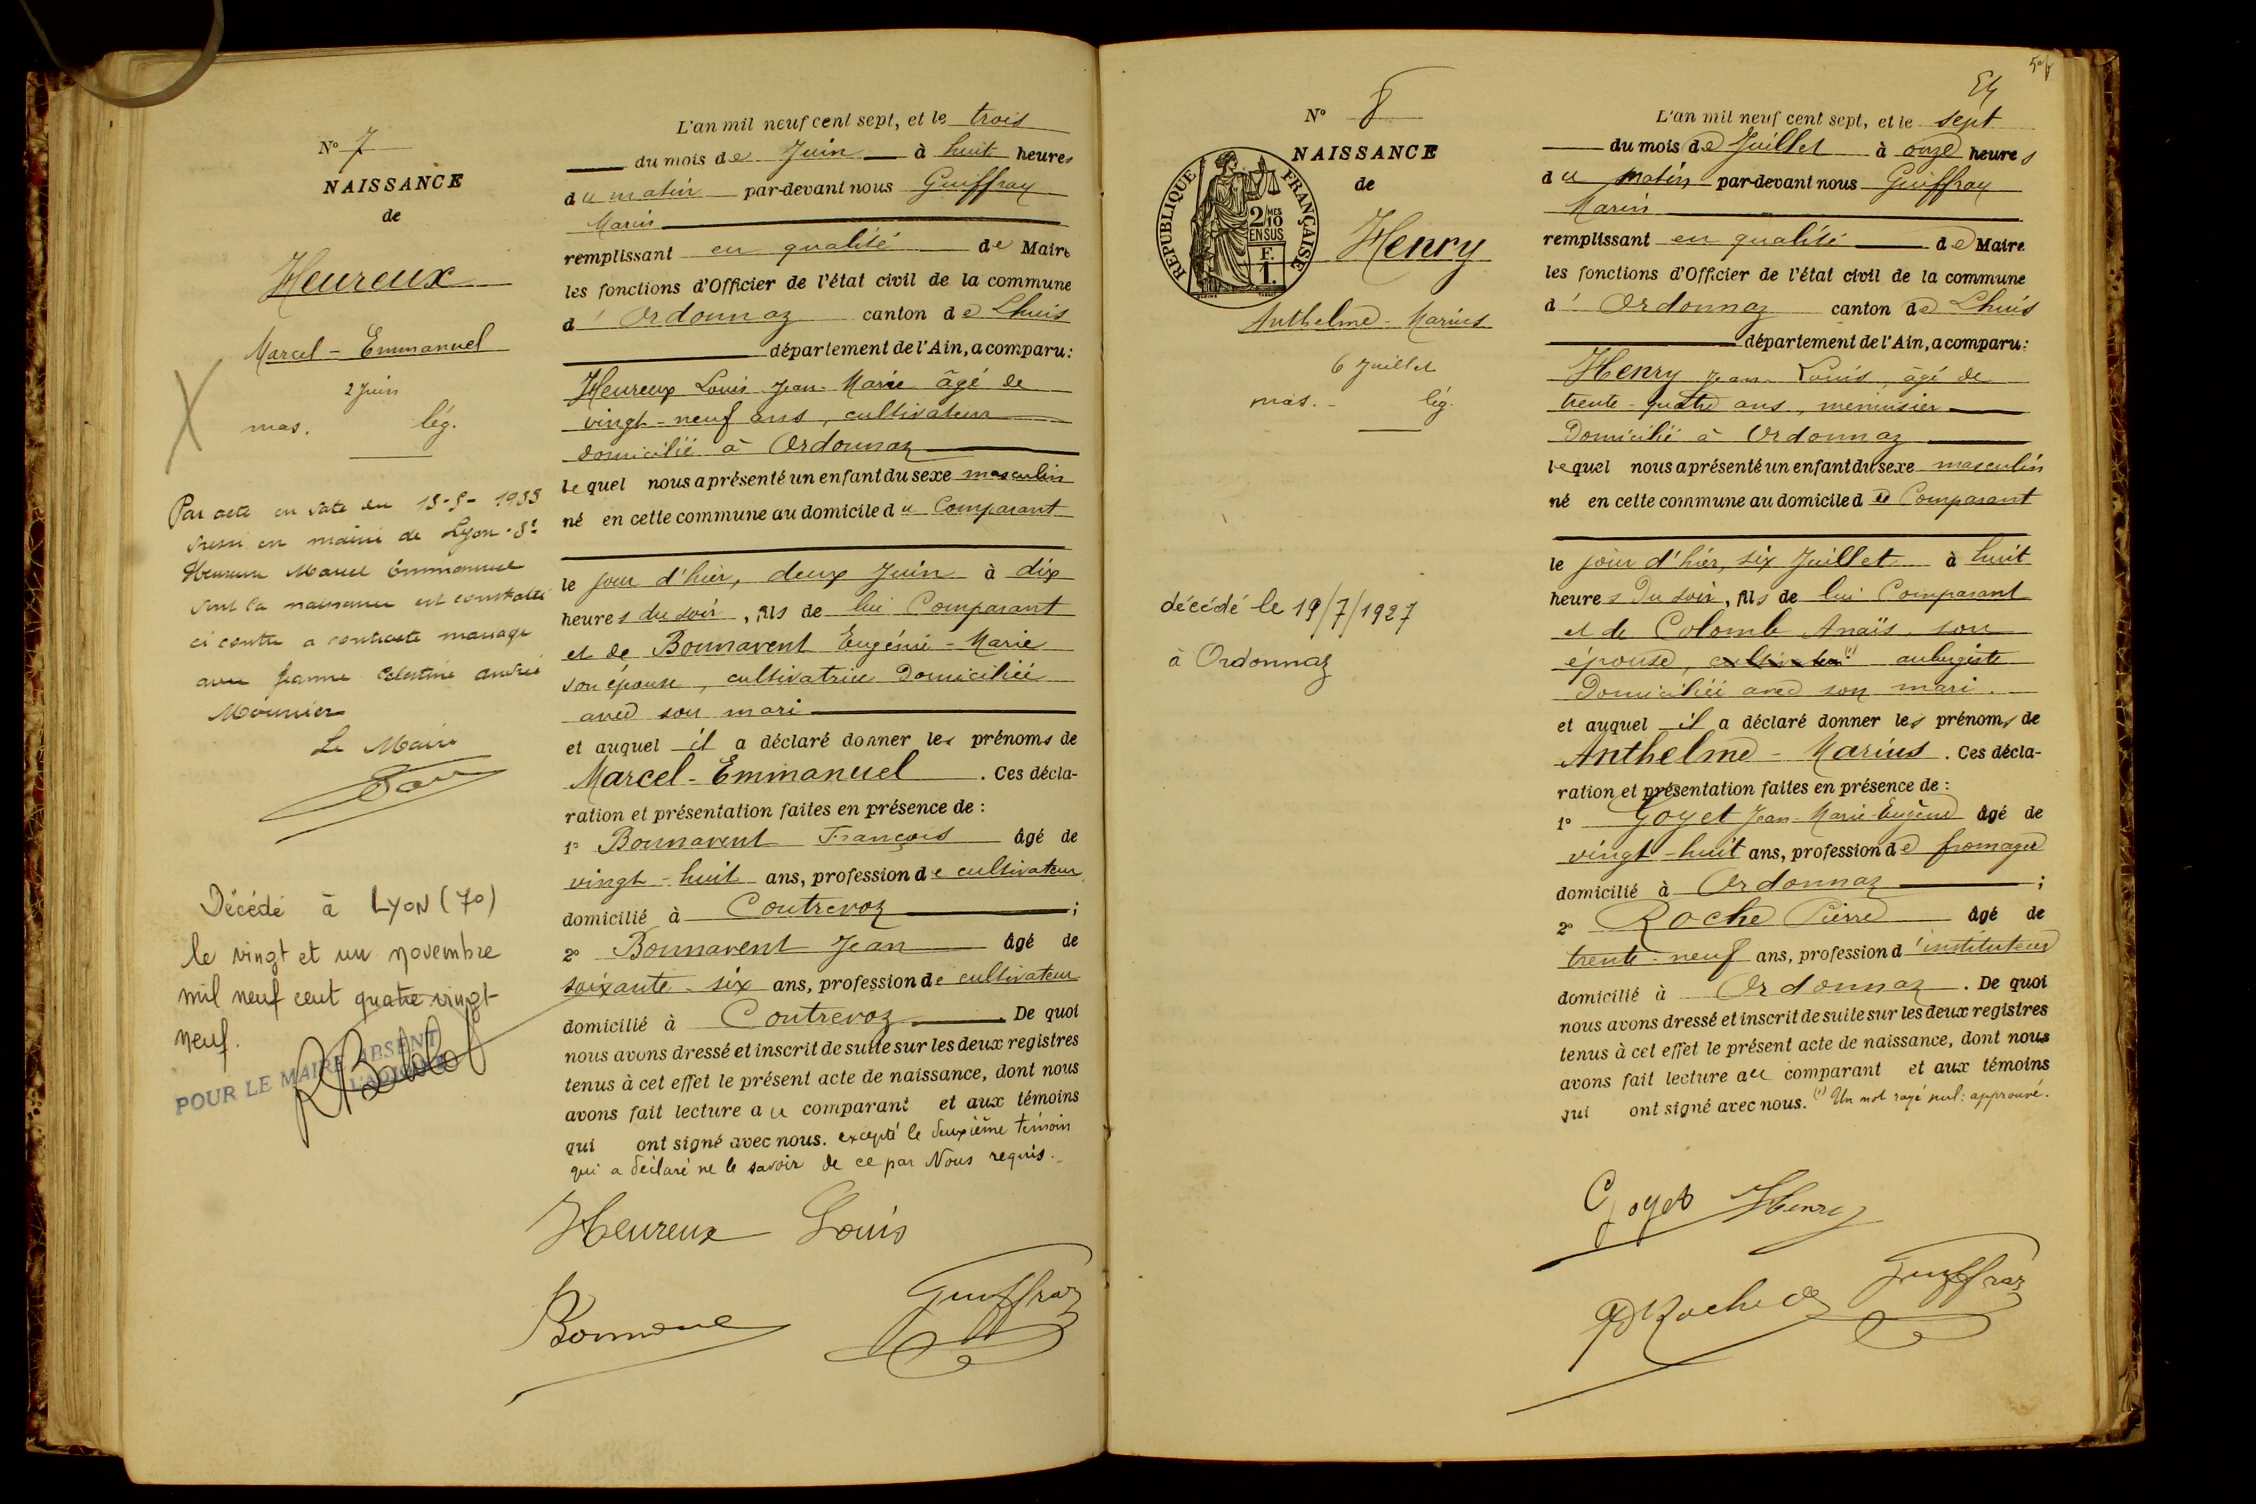 N° 7
NAISSANCE
de
Heureux
Marcel - Emmanuel
2 Juin
mas. lég.
Par acte en date du 1933
en mairie de Lyon
Heureux Marcel Emmanuel
dont la naissance est constatée
ci contre a contracté mariage
avec Jeanne Célestine Andrée
Mounier
Le Maire
Décédé à LYON (7°)
le vingt et un novembre
mil neuf cent quatre vingt
neuf.
POUR LE MAIRE ABSENT
L'an mil neuf cent sept, et le trois
du mois de Juin à huit heures
du matin par-devant nous Guiffray
Marin
remplissant en qualité de Maire
les fonctions d'Officier de l'état civil de la commune
d' Ordonnaz canton de Lhuis
département de l'Ain, a comparu:
Heureux Louis Jean-Marie âgé de
vingt-neuf ans, cultivateur
domicilié à Ordonnaz
lequel nous a présenté un enfant du sexe masculin
né en cette commune au domicile du Comparant
le jour d'hier, deux Juin à dix
heures du soir, fils de lui Comparant
et de Bonnavent Eugénie-Marie
son épouse, cultivatrice Domiciliée
avec son mari
et auquel il a déclaré donner les prénoms de
Marcel-Emmanuel. Ces décla-
ration et présentation faites en présence de:
1° Bonnavent François âgé de
vingt-huit ans, profession de cultivateur
domicilié à Contrevoz;
2° Bonnavent Jean âgé de
soixante-six ans, profession de cultivateur
domicilié à Contrevoz. De quoi
nous avons dressé et inscrit de suite sur les deux registres
tenus à cet effet le présent acte de naissance, dont nous
avons fait lecture au comparant et aux témoins
qui ont signé avec nous. excepté le deuxième témoin
qui a déclaré ne le savoir de ce par Nous requis.
Heureux Louis
Guiffray
54
N° 8
NAISSANCE
de
REPUBLIQUE FRANÇAISE
2/10 MES
EN SUS
F.
1.
Henry
Anthelme - Marius
6 Juillet
mas. - lég.
décédé le 19/7/1927
à Ordonnaz
L'an mil neuf cent sept, et le sept
du mois de Juillet à onze heures
du matin par-devant nous Guiffray
Marin
remplissant en qualité de Maire
les fonctions d'Officier de l'état civil de la commune
d' Ordonnaz canton de Lhuis
département de l'Ain, a comparu:
Henry Jean-Louis, âgé de
trente-quatre ans, menuisier
Domicilié à Ordonnaz
lequel nous a présenté un enfant du sexe masculin
né en cette commune au domicile du Comparant
le jour d'hier, six Juillet à huit
heures du soir, fils de lui Comparant
et de Colomb Anaïs, son
épouse, (1) aubergiste
Domiciliée avec son mari.
et auquel il a déclaré donner les prénoms de
Anthelme - Marius. Ces décla-
ration et présentation faites en présence de:
1° Goyet Jean-Marie-Eugène âgé de
vingt-huit ans, profession de fromager
domicilié à Ordonnaz;
2° Roche Pierre âgé de
trente-neuf ans, profession d'instituteur
domicilié à Ordonnaz. De quoi
nous avons dressé et inscrit de suite sur les deux registres
tenus à cet effet le présent acte de naissance, dont nous
avons fait lecture au comparant et aux témoins
qui ont signé avec nous. (1) Un mot rayé nul: approuvé.
Goyet Henry
Roche Guiffray